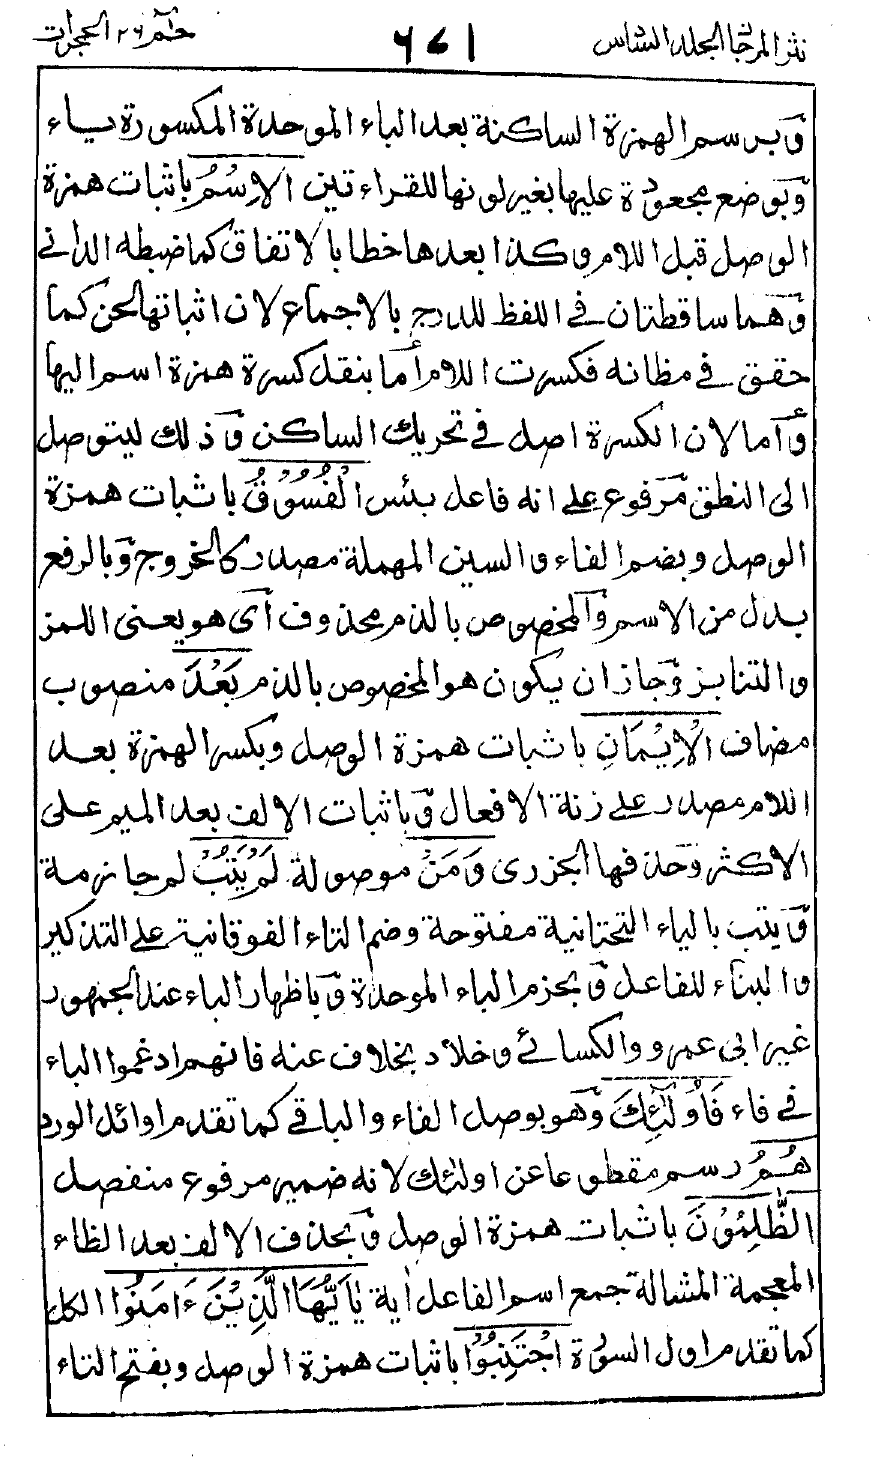 نثر المرجان المجلد السادس
٦٧١
حٰم ٢٦ الحجرات
وَبرسم الهمزة الساكنة بعد الباء الموحدة المكسورة ياء
وَبوضع مجعودة عليها بغير لونها للقراءتين الِاسْمُ باثبات همزة
الوصل قبل اللام وكذا بعدها خطا بالاتفاق كما ضبطه الداني
وَهما ساقطتان في اللفظ للدرج بالاجماع لان اثباتها لحن كما
حقق في مظانه فكسرت اللام أما بنقل كسرة همزة اسم اليها
وَأما لان الكسرة اصل في تحريك الساكن وَذلك ليتوصل
الى النطق مرفوع على انه فاعل بئس الْفُسُوْقُ باثبات همزة
الوصل وبضم الفاء والسين المهملة مصدر كالخروج وَبالرفع
بدل من الاسم وَالمخصوص بالذم محذوف أى هو يعنى اللمز
والتنابز وَجاز ان يكون هو المخصوص بالذم بَعْدَ منصوب
مضاف الْاِيْمَانِ باثبات همزة الوصل وبكسر الهمزة بعد
اللام مصدر على زنة الافعال وَباثبات الالف بعد الميم على
الاكثر وَحذفها الجزرى وَمَنْ موصولة لَمْ يَتُبْ لم جازمة
وَيتب بالياء التحتانية مفتوحة وضم التاء الفوقانية على التذكير
والبناء للفاعل وَبجزم الباء الموحدة وَباظهار الباء عند الجمهور
غير ابى عمرو والكسائي وخلاد بخلاف عنه فانهم ادغموا الباء
في فاء فَاُولٰٓئِكَ وَهو بوصل الفاء والباقي كما تقدم اوائل الورد
هُمُ رسم مقطوعا عن اولئك لانه ضمير مرفوع منفصل
الظّٰلِمُوْنَ باثبات همزة الوصل وَبحذف الالف بعد الظاء
المعجمة المشالة جمع اسم الفاعل اٰية يٰاَيُّهَا الَّذِيْنَ ءَامَنُوا الكل
كما تقدم اول السورة اجْتَنِبُوْا باثبات همزة الوصل وبفتح التاء